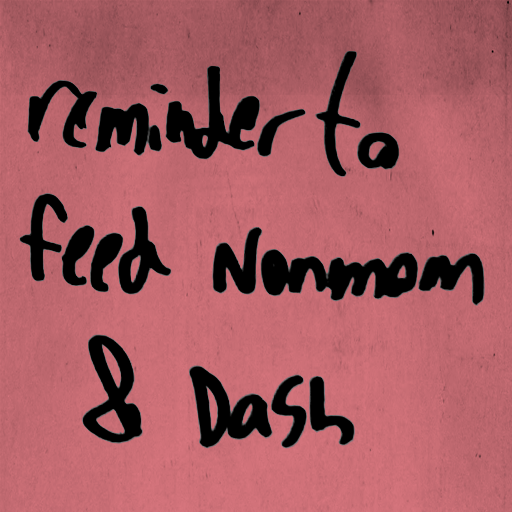 reminder to
feed Nonmom
& Dash